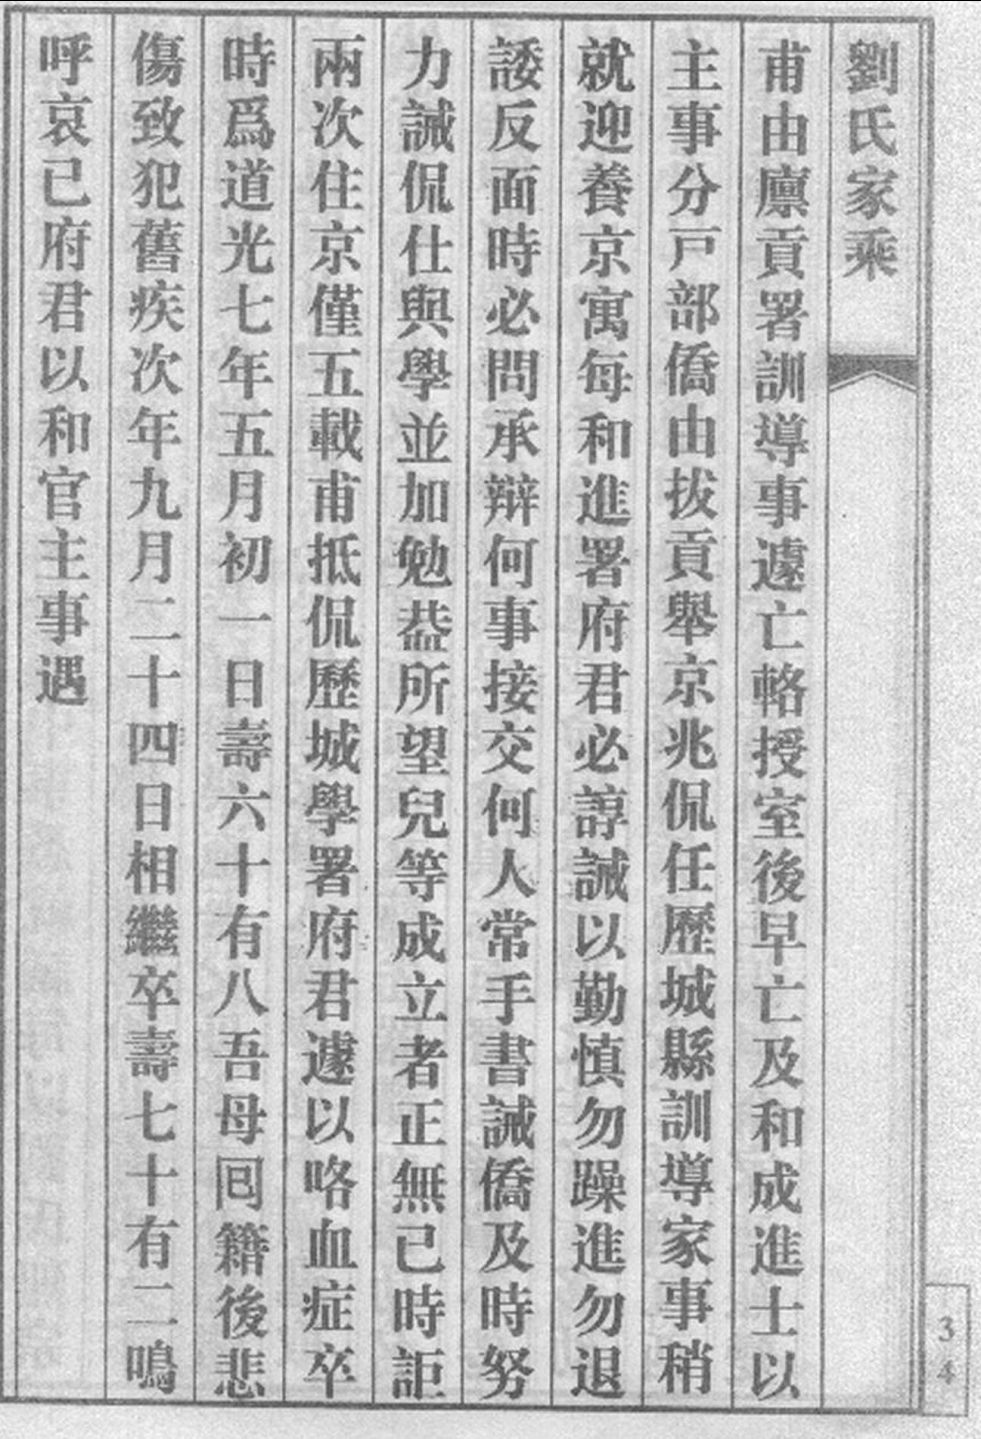 劉氏家乘
甫由廩貢署訓導事遽亡輅授室後早亡及和成進士以
主事分戸部僑由拔貢舉京兆侃任歷城縣訓導家事稍
就迎養京寓每和進署府君必諄誡以勤慎勿躁進勿退
諉反面時必問承辯何事接交何人常手書誡僑及時努
力誡侃仕與學並加勉葢所望兒等成立者正無已時詎
兩次住京僅五載甫抵侃歷城學署府君遽以咯血症卒
時爲道光七年五月初一日壽六十有八吾母囘籍後悲
傷致犯舊疾次年九月二十四日相繼卒壽七十有二鳴
呼哀已府君以和官主事遇
34